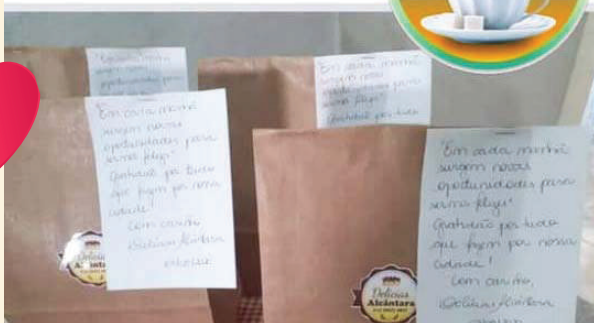 "Em cada manhã
surgem novas
oportunidades para
"Em cada manhã
surgem novas
oportunidades para
sermos felizes"
Gratidão por tudo
"Em cada manhã
surgem novas
oportunidades para
sermos felizes"
Gratidão por tudo
que fazem por nossa
cidade!
Com carinho,
Delícias Alcântara
"Em cada manhã
surgem novas
oportunidades para
sermos felizes"
Gratidão por tudo
que fazem por nossa
cidade!
Com carinho,
Delícias Alcântara
Delícias
Alcântara
Delícias
Alcântara